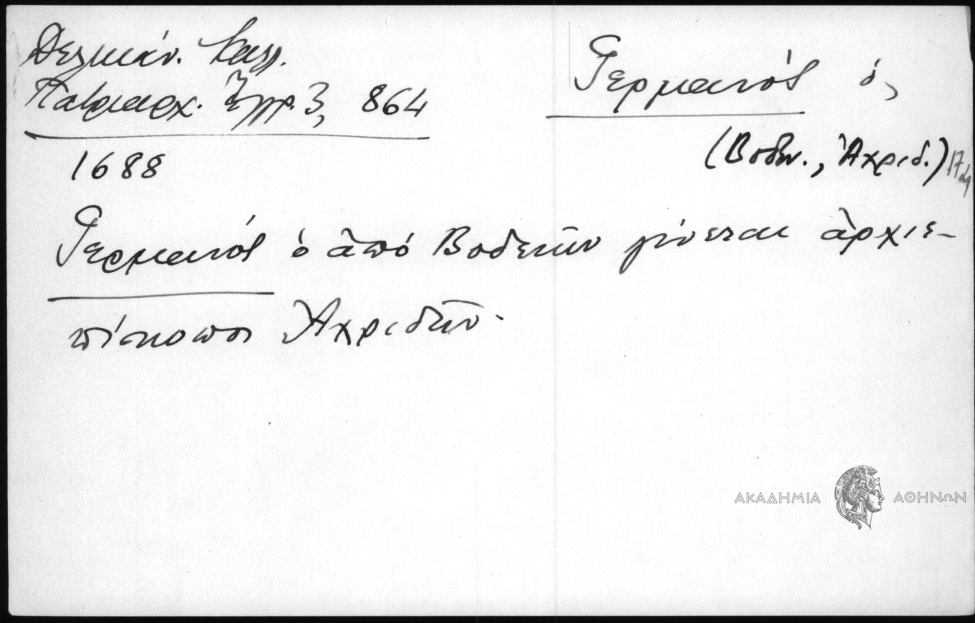 Δελικάν. Καλλ.
Πατριαρχ. Ἔγγρ. 3, 864
Γερμανός ὁ,
(Βοδεν., Ἀχριδ.) 17
1688
Γερμανός ὁ ἀπό Βοδενῶν γίνεται ἀρχιε-
πίσκοπος Ἀχριδῶν.
ΑΚΑΔΗΜΙΑ ΑΘΗΝΩΝ